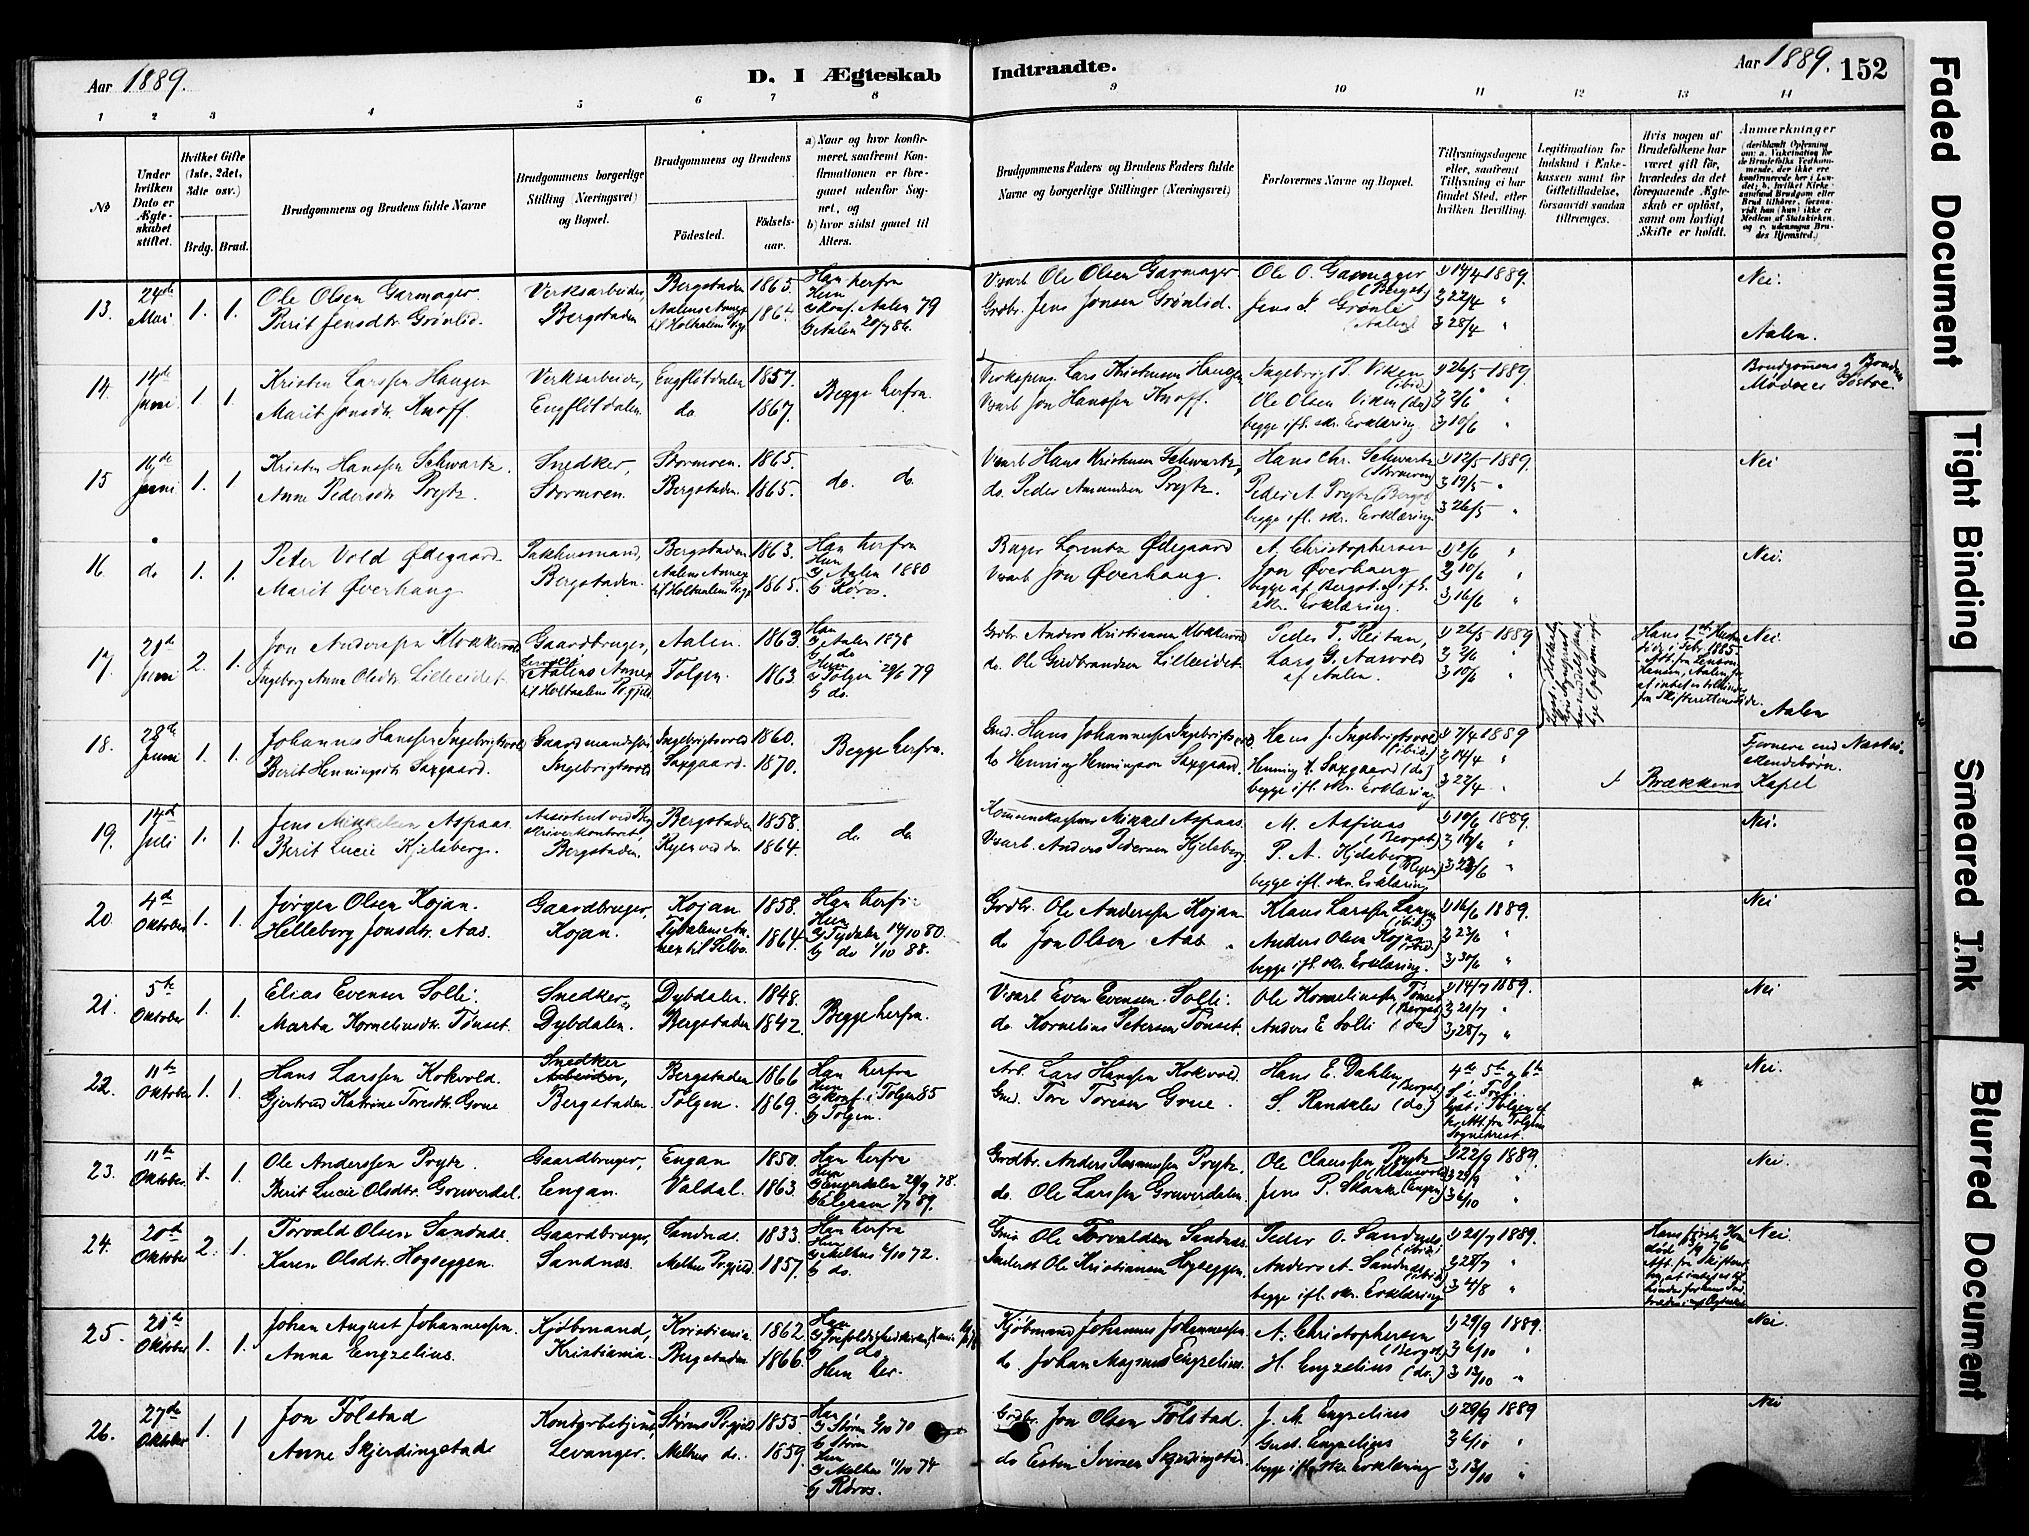 Aar 1889.
D. I Ægteskab
Indtraadte.
Aar 1889.
152
1 2 3 4 5 6 7 8 9 10 11 12 13 14
No
Under hvilken Dato er Ægteskabet stiftet.
Hvilket Gifte (1ste, 2det, 3die osv.)
Brdg. Brud.
Brudgommens og Brudens fulde Navne
Brudgommens borgerlige Stilling (Næringsvei) og Bopæl.
Brudgommens og Brudens
Fødested.
Fødselsaar.
a) Naar og hvor konfirmeret, saafremt Konfirmationen er foregaaet udenfor Sognet, og
b) hvor sidst gaaet til Alters.
Brudgommens Faders og Brudens Faders fulde Navne og borgerlige Stillinger (Næringsvei)
Forlovernes Navne og Bopæl.
Tillysningsdagene eller, saafremt Tillysning ei har fundet Sted, efter hvilken Bevilling.
Legitimation for Indskud i Enkekassen samt for Giftetilladelse, forsaavidt saadan tiltrænges.
Hvis nogen af Brudefolkene har været gift før, hvorledes da det foregaaende Ægteskab er opløst, samt om lovligt Skifte er holdt.
Anmærkninger
13. 24de Mai 1. 1.
Ole Olsen Garmager.
Berit Jensdtr Grønlid.
Verksarbeider, Bergstaden
Bergstaden 1865.
Aalens Annex til Holtaalens Prgj. 1864
Han herfra
Hun a) konf. Aalen 79
b) Aalen 20/7 86.
Varb Ole Olsen Garmager
Grdbr. Jens Jonsen Grønlid.
Ole O. Garmager (Bergst.)
Jens J. Grønli (Aalen)
1) 14/4 1889.
2) 22/4 "
3) 28/4 "
Nei.
Aalen.
14. 14de Juni 1 1.
Kristen Larssen Haugen
Marit Jonsdtr Knoff.
Verksarbeider, Engflotdalen.
Engflotdalen 1857.
do. 1867.
Begge herfra.
Lars Kristensen Haugen
Varb Jon Hanssen Knoff.
Ingebrigt P. Viken (ibid.)
Ole Olsen Viken (do)
begge ifl. skr. Erklæring.
1) 26/5 1889
2) 2/6 "
3) 10/6 "
Brudgommens og Brudens Mødre er Søstre.
15 16de Juni 1. 1
Kristen Hanssen Schwartz.
Anne Pedersdtr Prytz.
Snedker, Stormoen.
Stormoen. 1865.
Bergstaden. 1865.
do. do.
Varb Hans Kristensen Schwartz,
do. Peder Amundsen Prytz.
Hans Chr. Schwartz (Stormoen)
Peder A. Prytz (Bergst)
begge ifl. skr. Erklæring.
1) 12/5 1889.
2) 19/5 "
3) 26/5 "
Nei
16. do 1. 1.
Peter Vold Ødegaard
Marit Øverhaug
Pakhusmand, Bergstaden.
Bergstaden 1863.
Aalens Annex til Holtaalens Prgj 1865.
Han herfra
Hun a) Aalen 1880
b) Røros.
Bager Lorentz Ødegaard
Varb Jon Øverhaug.
A. Christophersen
Jon Øverhaug
begge af Bergst. og ifl. skr. Erklæring.
1) 2/6 "
2) 10/6 "
3) 16/6 "
Nei.
17. 21de Juni 2. 1.
Jon Anderssen Klokkervold
Ingeborg Anna Olsdtr Lilleeidet.
Gaardbruger,
Aalens Annex til Holtaalens Prgjeld
Aalen. 1863.
Tolgen. 1863.
Han a) Aalen 1878
b) do
Hun a) Tolgen 29/6 79
b) do.
Grdbr. Anders Kristiansen Klokkervold
do. Ole Gudbrandsen Lilleeidet.
Peder T. Reitan,
Lars G. Aasvold
af Aalen.
1) 26/5 1889
2) 2/6 "
3) 10/6 "
Nei
Aalen
18. 28de Juni 1. 1.
Johannes Hanssen Ingebrigtsvold
Berit Henningsdtr Saxgaard.
Gaardmandssøn Ingebrigtsvold
Ingebrigtsvold 1860.
Saxgaard. 1870.
Begge herfra.
Gmd. Hans Johannessen Ingebrigtsvold.
do Henning Henningsen Saxgaard.
Hans J. Ingebrigtsvold (ibid.)
Henning H. Saxgaard (do)
begge ifl. skr. Erklæring
1) 7/4 1889
2) 14/4 "
3) 22/4 "
Fjernere end Næstsøskendebørn.
Brækkens Kapel
19. 14de Juli 1. 1.
Jens Mikkelsen Aspaas.
Berit Lucie Kjelsberg.
Assistent ved Bergskriverkontoret, Bergstaden.
Bergstaden 1858.
Ryen ved do. 1864.
do do
Mikkel Aspaas.
Varb. Anders Pedersen Kjelsberg.
M. Aspaas (Bergst)
P. A. Kjelsberg (Ryen)
begge ifl. skr. Erklæring
1) 10/6 1889.
2) 16/6 "
3) 23/6 "
Nei.
20 4de Oktober 1. 1.
Jørgen Olsen Kojan.
Helleborg Jonsdtr. Aas.
Gaardbruger, Kojan.
Kojan 1858.
Tydalens Annex til Selbo. 1864.
Han herfra
Hun a) Tydalen 14/10 80.
b) do 1/10 88.
Grdbr. Ole Anderssen Kojan
do Jon Olsen Aas.
Klaus Larssen Langen (ibid)
Anders Olsen Kojan (ibid.)
begge ifl. skr. Erklæring.
1) 16/6 1889.
2) 23/6 "
3) 30/6 "
Nei
21. 5te Oktober 1. 1.
Elias Evensen Solli.
Marta Korneliusdtr. Tønset.
Snedker, Dybdalen.
Dybdalen. 1848.
Bergstaden 1842.
Begge herfra.
Varb Even Evensen Solli.
do. Kornelius Petersen Tønset.
Ole Korneliussen Tønset (Bergst)
Anders E. Solli (do)
1) 14/7 1889.
2) 21/7 "
3) 28/7 "
Nei
22. 11te Oktober 1. 1.
Hans Larssen Kokvold.
Gjertrud Katrine Toresdtr. Grue
Snedker
Arbeider,
Bergstaden.
Bergstaden 1866
Tolgen. 1869.
Han herfra
Hun a) konf. i Tolgen 85
b) Tolgen.
Arb. Lars Hanssen Kokvold.
Gmd. Tore Toresen Grue.
Hans E. Dahlen (Bergst)
S. Randalen (do)
4de 5te og 6te S. e. Tref.
lyst i Tolgen
Att. fra Tolgens Sogneprest.
Nei.
23. 11te Oktober. 1. 1.
Ole Anderssen Prytz.
Berit Lucie Olsdtr. Gruverdal.
Gaardbruger, Engan.
Engan 1850.
Valdal. 1863.
Han herfra
Hun a) Engerdalen 29/9 78.
b) Elgaaen 7/7 89.
Grdbr. Anders Rasmussen Prytz.
do. Ole Larssen Gruverdalen.
Ole Claussen Prytz (Klausvold)
Jens P. Skanke (Engen)
1) 22/9 1889.
2) 29/9 "
3) 6/10 "
Nei.
24. 20de Oktober 2. 1.
Torvald Olsen Sandnes.
Karen Olsdtr. Hogseggen.
Gaardbruger, Sandnæs.
Sandnæs. 1833.
Melhus Prgjeld 1857.
Han herfra
Hun a) Melhus 6/10 72.
b) do.
Gmd Ole Torvaldsen Sandnæs.
Ole Kristiansen Hogseggen.
Peder O. Sandnæs (ibid.)
Anders A. Sandnæs (ibid)
begge ifl. skr. Erklæring
1) 21/7 1889.
2) 28/7 "
3) 4/8 "
Nei.
25. 21de Oktober 1. 1.
Johan August Johannessen.
Anna Engzelius.
Kjøbmand, Kristiania.
Kristiania. 1862.
Bergstaden 1866.
b) do.
Hun her.
Kjøbmand Johannes Johannessen.
do. Johan Magnus Engzelius.
A. Christophersen (Bergst)
H. Engzelius (do.)
1) 29/9 1889.
2) 6/10 "
3) 13/10 "
Nei.
26. 27de Oktober 1. 1
Jon Folstad
Anne Skjerdingstad
Kontorbetjent, Levanger.
Størens Prgjeld 1855.
Melhus do. 1859.
Han a) Støren 9/10 70
b) Støren
Hun a) Melhus 11/10 74
b) Røros.
Grdbr. Jon Olsen Folstad.
do Esten Iversen Skjerdingstad.
J. M. Engzelius
Gust. Engzelius
begge ifl. skr. Erklæring
1) 29/9 1889
2) 6/10 "
3) 13/10 "
Nei
Faded Document
Tight Binding
Smeared Ink
Blurred Document